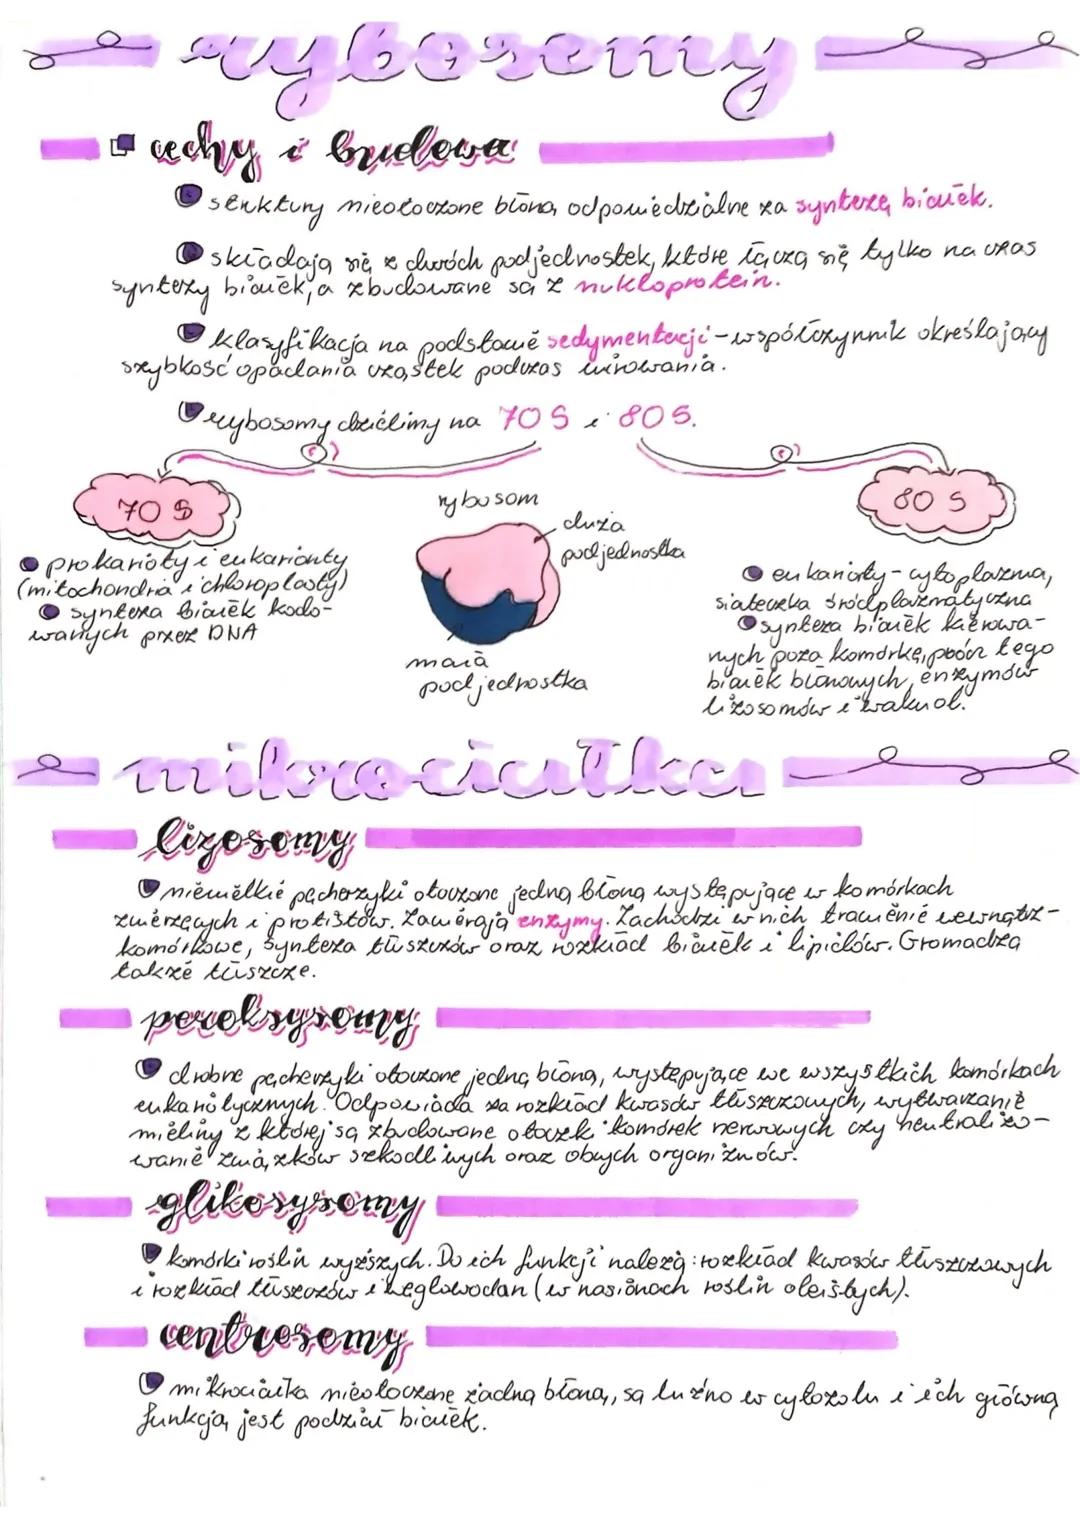 rybosomy
cechy i budowa
struktury nieotoczone błoną, odpowiedzialne za syntezę białek.
składają się z dwóch podjednostek, które łączą się tylko na czas
syntezy białek, a zbudowane są z nukloprotein.
klasyfikacja na podstawie sedymentacji - współczynnik określający
szybkość opadania cząstek podczas wirowania.
rybosomy dzielimy na 70 S i 80 S.
70 S
80 S
rybosom
duża
podjednostka
mała
podjednostka
prokarioty i eukarionty
(mitochondria i chloroplasty)
synteza białek kodo-
wanych przez DNA
eukarioty - cytoplazma,
siateczka śródplazmatyczna
synteza białek kierowa-
nych poza komórkę, prócz tego
białek błonowych, enzymów
lizosomów i wakuol.
mikrociałka
lizosomy
niewielkie pęcherzyki otoczone jedną błoną występujące w komórkach
zwierzęcych i protistów. Zawierają enzymy. Zachodzi w nich trawienie wewnątrz-
komórkowe, synteza tłuszczów oraz rozkład białek i lipidów. Gromadzą
także tłuszcze.
peroksysomy
drobne pęcherzyki otoczone jedną błoną, występujące we wszystkich komórkach
eukariotycznych. Odpowiada za rozkład kwasów tłuszczowych, wytwarzanie
mieliny z której są zbudowane otoczki komórek nerwowych czy neutralizo-
wanie związków szkodliwych oraz obcych organizmów.
glikosysomy
komórki roślin wyższych. Do ich funkcji należą: rozkład kwasów tłuszczowych
i rozkład tłuszczów i węglowodan (w nasionach roślin oleistych).
centrosomy
mikrociałka nieotoczone żadną błoną, są luźno w cytozolu i ich główną
funkcją jest podział białek.